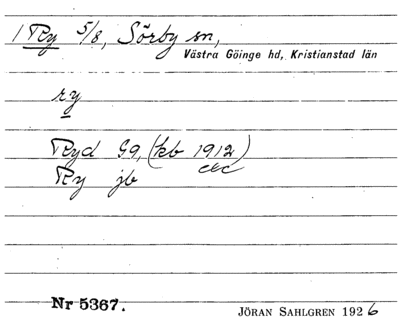 1 Ry 5/8, Sörby sn,
Västra Göinge hd, Kristianstad län
ry
Ryd G9, (kb 1912)
Ry jb
Nr 5367.
JÖRAN SAHLGREN 1926